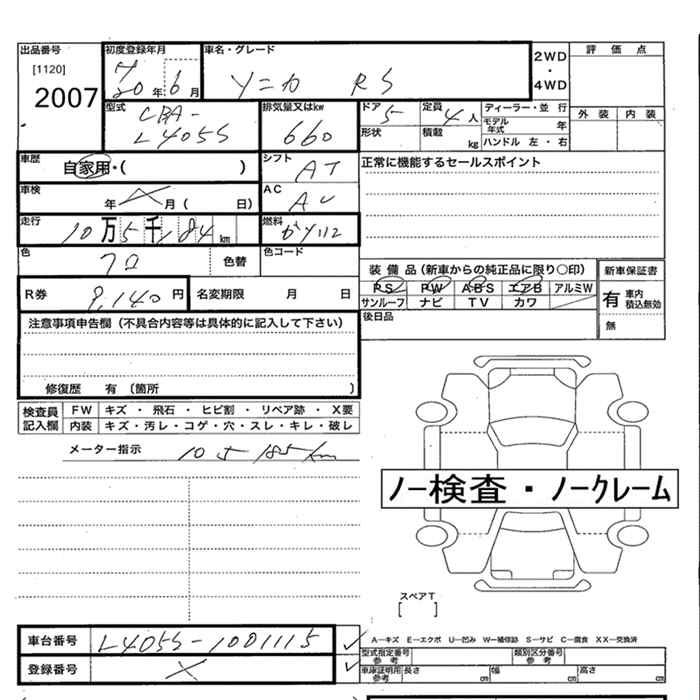 出品番号
[1120]
2007
初度登録年月
H
20年 6月
車名・グレード
ソニカ RS
2WD
・
4WD
評価点
外装 内装
型式
CBA-
L405S
排気量又はkw
660
ドア 5
定員 4人
ディーラー・並行
モデル年式 年
形状
積載 kg
ハンドル 左・右
車歴
自家用・( )
シフト
AT
正常に機能するセールスポイント
車検
年 月( 日)
AC
走行
10万5千184km
燃料
ガソリン
色
クロ
色替
色コード
装備品(新車からの純正品に限り○印)
PS PW ABS エアB アルミW
サンルーフ ナビ TV カワ
新車保証書
有 車内積込無効
無
R券
9,140円
名変期限 月 日
後日品
注意事項申告欄(不具合内容等は具体的に記入して下さい)
修復歴 有(箇所 )
検査員記入欄
FW キズ・飛石・ヒビ割・リペア跡・X要
内装 キズ・汚レ・コゲ・穴・スレ・キレ・破レ
メーター指示 105185km
ノー検査・ノークレーム
スペアT
[ ]
車台番号 L405S-1001115
登録番号
A―キズ E―エクボ U―凹み W―補修跡 S―サビ C―腐食 XX―交換済
型式指定番号 参考
類別区分番号 参考
車庫証明用 参考
長さ cm 幅 cm 高さ cm